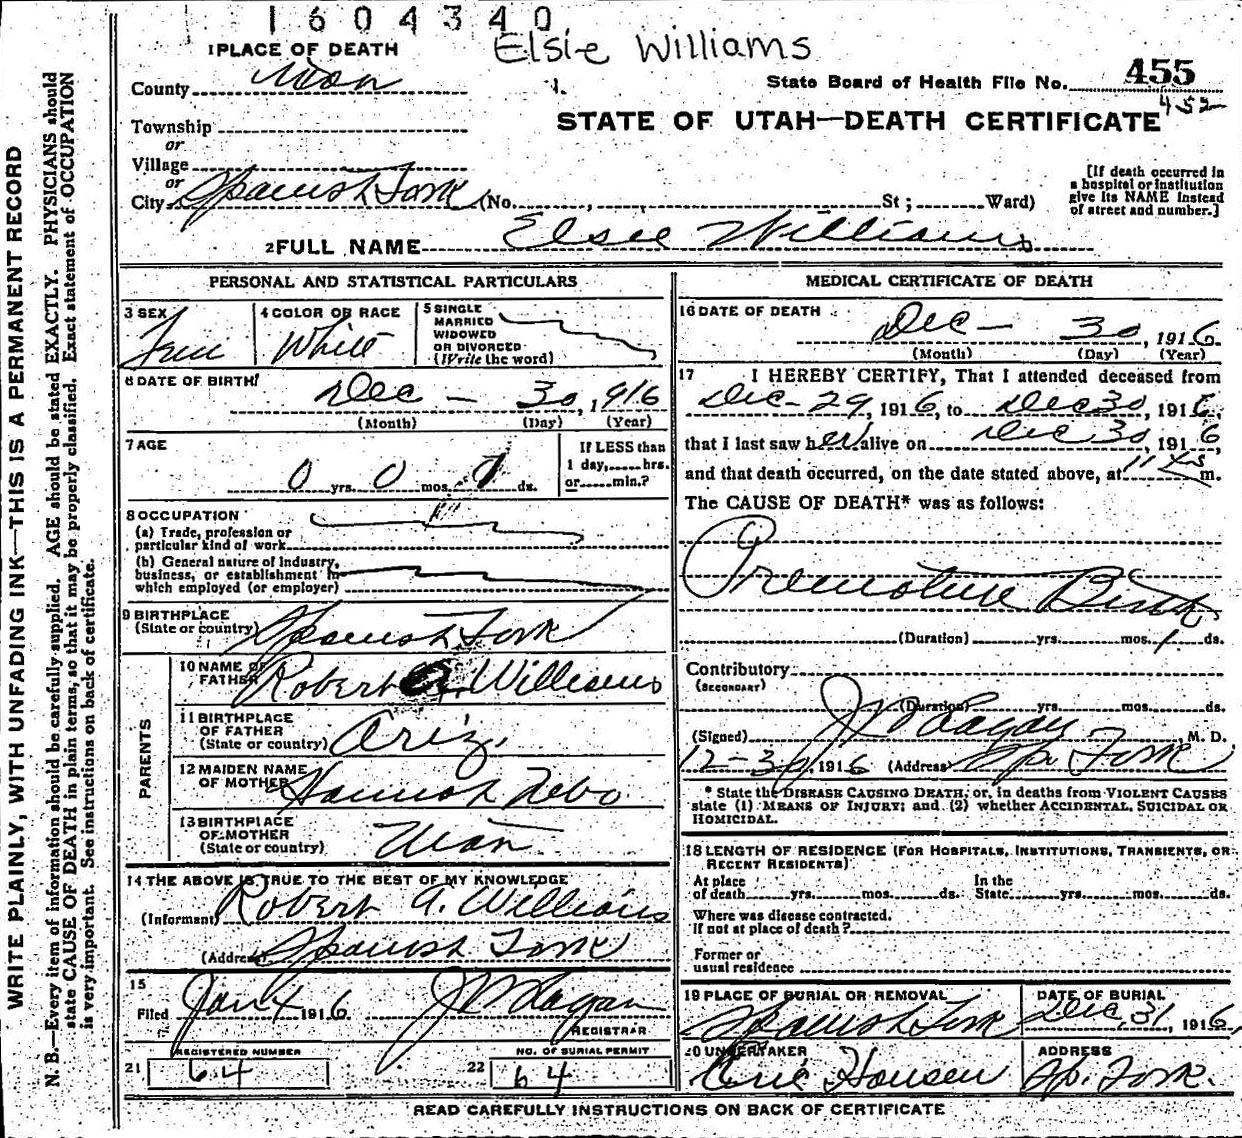 1604340
Elsie Williams
1 PLACE OF DEATH
County Utah
State Board of Health File No. 455
452
STATE OF UTAH—DEATH CERTIFICATE
Township
or
Village
or
City Spanish Fork (No. , St ; Ward)
[If death occurred in
a hospital or institution
give its NAME instead
of street and number.]
2 FULL NAME Elsie Williams
PERSONAL AND STATISTICAL PARTICULARS
3 SEX
Fem
4 COLOR OR RACE
White
5 SINGLE
MARRIED
WIDOWED
OR DIVORCED
(Write the word)
6 DATE OF BIRTH
Dec — 30, 1916
(Month) (Day) (Year)
7 AGE
0 yrs. 0 mos. ds.
IF LESS than
1 day, hrs.
or min.?
8 OCCUPATION
(a) Trade, profession or
particular kind of work
(b) General nature of Industry,
business, or establishment in
which employed (or employer)
9 BIRTHPLACE
(State or country) Spanish Fork
PARENTS
10 NAME OF
FATHER Robert A. Williams
11 BIRTHPLACE
OF FATHER
(State or country) Ariz.
12 MAIDEN NAME
OF MOTHER Hannah Nebo
13 BIRTHPLACE
OF MOTHER
(State or country) Utah
14 THE ABOVE IS TRUE TO THE BEST OF MY KNOWLEDGE
(Informant) Robert A. Williams
(Address) Spanish Fork
15
Filed Jan 4 1916 J W Hagan
REGISTRAR
REGISTERED NUMBER
21 64
NO. OF BURIAL PERMIT
22 64
MEDICAL CERTIFICATE OF DEATH
16 DATE OF DEATH
Dec — 30, 1916
(Month) (Day) (Year)
17 I HEREBY CERTIFY, That I attended deceased from
Dec - 29, 1916, to Dec 30, 1916,
that I last saw her alive on Dec 30, 1916,
and that death occurred, on the date stated above, at 11 45 m.
The CAUSE OF DEATH* was as follows:
Premature Birth
(Duration) yrs. mos. 1 ds.
Contributory
(SECONDARY)
(Duration) yrs. mos. ds.
(Signed) J W Hagan, M. D.
12-30, 1916 (Address) Sp. Fork
* State the DISEASE CAUSING DEATH, or, in deaths from VIOLENT CAUSES
state (1) MEANS OF INJURY; and (2) whether ACCIDENTAL, SUICIDAL OR
HOMICIDAL.
18 LENGTH OF RESIDENCE (FOR HOSPITALS, INSTITUTIONS, TRANSIENTS, OR
RECENT RESIDENTS)
At place
of death yrs. mos. ds.
In the
State yrs. mos. ds.
Where was disease contracted.
If not at place of death?
Former or
usual residence
19 PLACE OF BURIAL OR REMOVAL
Spanish Fork
DATE OF BURIAL
Dec, 31, 1916,
20 UNDERTAKER
Hansen
ADDRESS
Sp. Fork.
READ CAREFULLY INSTRUCTIONS ON BACK OF CERTIFICATE
WRITE PLAINLY, WITH UNFADING INK—THIS IS A PERMANENT RECORD
N. B.—Every item of information should be carefully supplied. AGE should be stated EXACTLY. PHYSICIANS should
state CAUSE OF DEATH in plain terms, so that it may be properly classified. Exact statement of OCCUPATION
is very important. See instructions on back of certificate.